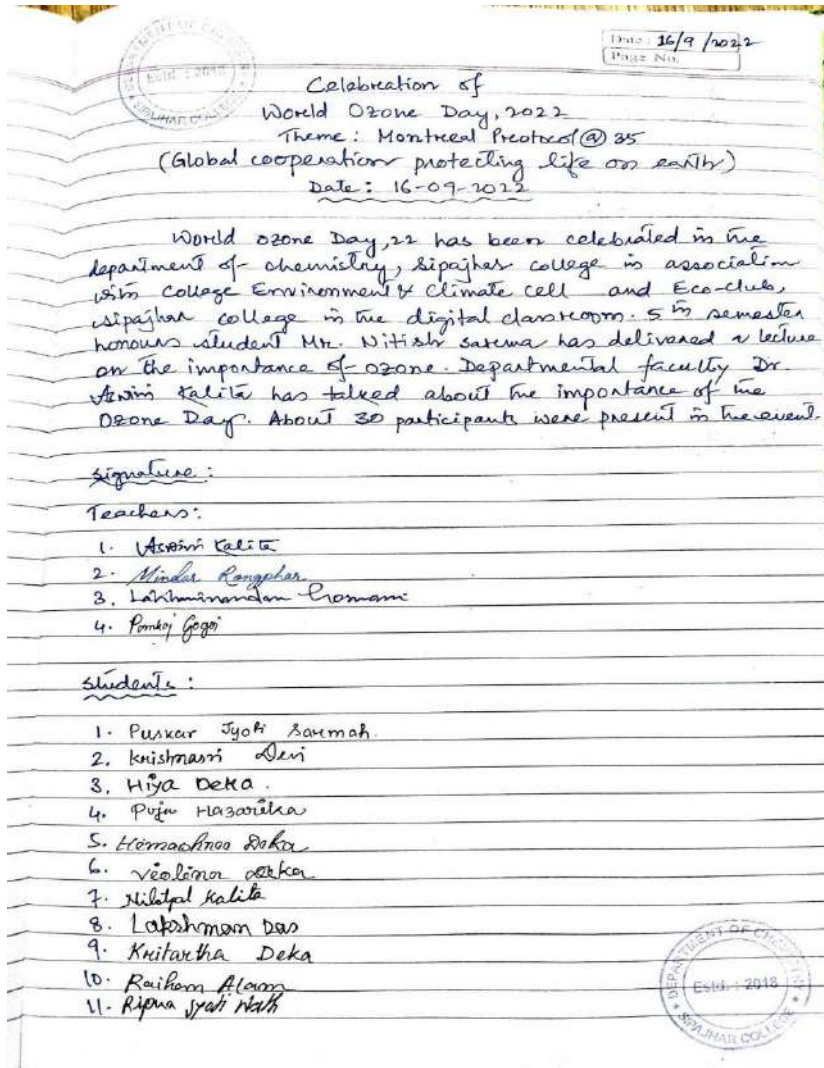 DEPARTMENT OF CHEMISTRY
Estd. : 2018
SIPAJHAR COLLEGE
Date: 16/9/2022
Page No.
Celebration of
World Ozone Day, 2022
Theme: Montreal Protocol@35
(Global cooperation protecting life on earth)
Date: 16-09-2022
World Ozone Day, 22 has been celebrated in the
department of chemistry, Sipajhar college in association
with College Environment & Climate cell and Eco-club,
Sipajhar college in the digital classroom. 5th semester
honours student Mr. Nitish Sarma has delivered a lecture
on the importance of ozone. Departmental faculty Dr.
Aswini Kalita has talked about the importance of the
Ozone Day. About 30 participants were present in the event.
Signature:
Teachers:
1. Aswini Kalita
2. Mindar Rongphar
3. Lakhminandan
4. Pankaj Gogoi
Students:
1. Puskar Jyoti Sarmah.
2. Krishnasri Devi
3. Hiya Deka.
4. Puja Hazarika
5. Hemashree Deka
6. Violina Deka
7. Nilotpal Kalita
8. Lakshman Das
9. Kritartha Deka
10. Raiham Alam
11. Jyoti Nath
DEPARTMENT OF CHEMISTRY
Estd. : 2018
SIPAJHAR COLLEGE